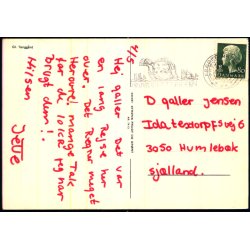 4/5
Hej galler Det var
en lang Rejse her
over. Det Regner meget
Herovre! mange Tak
for de 10 kr jeg har
Brugt dem!
Hilsen
Jette
DANMARK
D galler jensen
Ida textorpfsvej 6
3050 Humlebæk
sjælland.